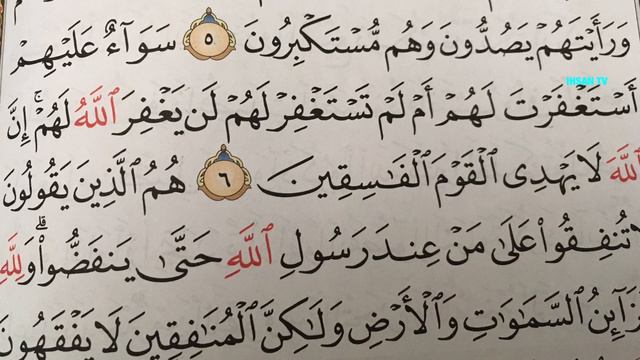 وَرَأَيْتَهُمْ يَصُدُّونَ وَهُم مُّسْتَكْبِرُونَ ٥ سَوَآءٌ عَلَيْهِمْ
IHSAN TV
أَسْتَغْفَرْتَ لَهُمْ أَمْ لَمْ تَسْتَغْفِرْ لَهُمْ لَن يَغْفِرَ ٱللَّهُ لَهُمْ ۚ إِنَّ
ٱللَّهَ لَا يَهْدِى ٱلْقَوْمَ ٱلْفَـٰسِقِينَ ٦ هُمُ ٱلَّذِينَ يَقُولُونَ
لَا تُنفِقُوا۟ عَلَىٰ مَنْ عِندَ رَسُولِ ٱللَّهِ حَتَّىٰ يَنفَضُّوا۟ ۗ وَلِلَّهِ
خَزَآئِنُ ٱلسَّمَـٰوَٰتِ وَٱلْأَرْضِ وَلَـٰكِنَّ ٱلْمُنَـٰفِقِينَ لَا يَفْقَهُونَ